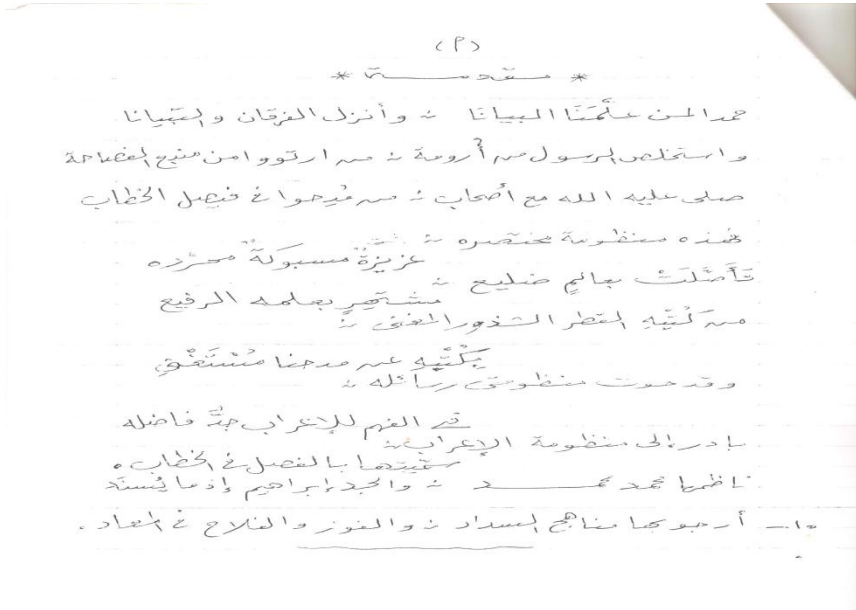 (٢)
* مقدمة *
حمدا لمن علَّمَنَا البيانا ∴ وأنزل الفرقان والتبيانا
واستخلص الرسول من أُرومة ∴ من ارتووا من منبع الفصاحة
صلى عليه الله مع أصحاب ∴ من مُدحوا في فيصل الخطاب
فهذه منظومة مختصره ∴
عزيزةٌ مسبوكةٌ محرّره
تَأَصَّلَتْ بعالمٍ ضليع ∴
مشتهرٍ بعلمه الرفيع
من كُتْبِهِ القطر الشذور المغني ∴
بكُتْبِه عن مدحنا مُسْتَغْنِ
وقد حوت منظومتي رسائله ∴
في الفهم للإعراب جدُّ فاضله
بادر إلى منظومة الإعراب ∴
سمَّيتها بالفصل في الخطاب
ناظمها محمد محمد ∴ والجد إبراهيم إذ ما يُسند
١٠ـ أرجو بها مناهج السداد ∴ والفوز والفلاح في المعاد .